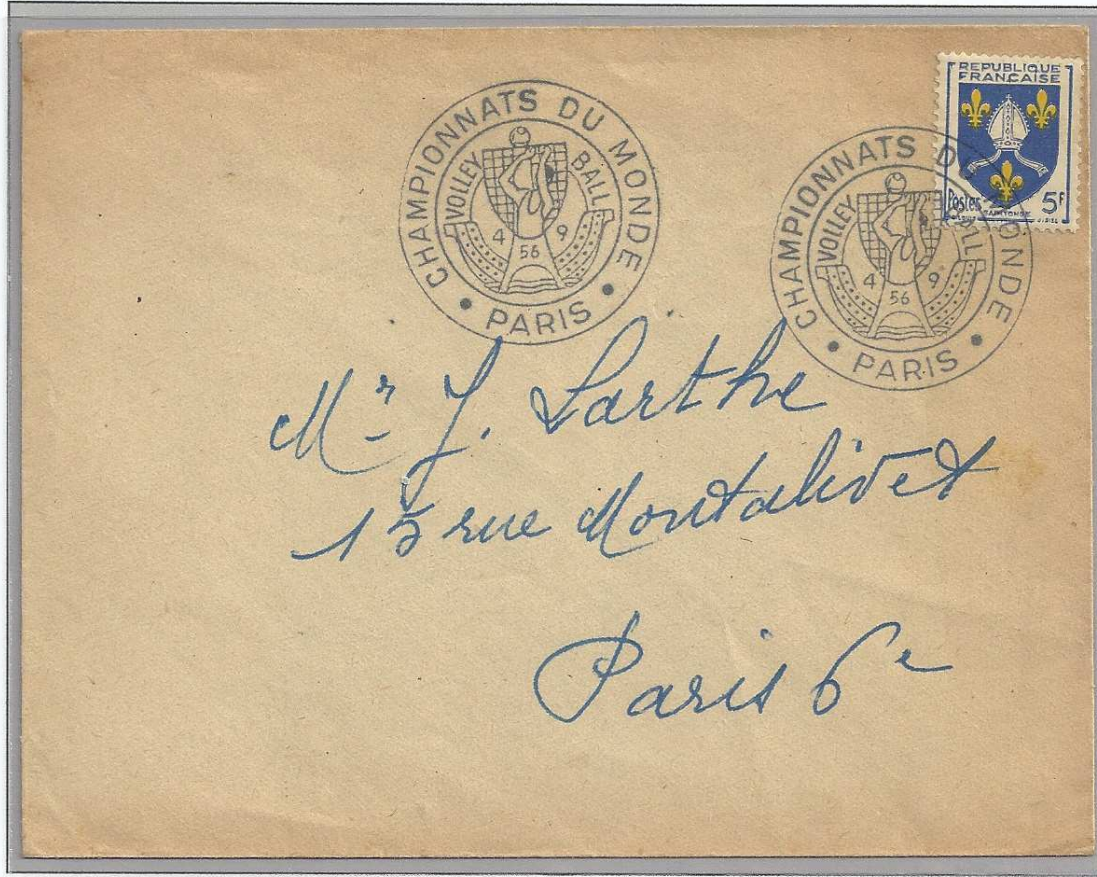 CHAMPIONNATS DU MONDE
VOLLEY BALL
4 9
56
• PARIS •
CHAMPIONNATS DU MONDE
VOLLEY BALL
4 9
56
• PARIS •
REPUBLIQUE
FRANÇAISE
Postes 5F
SAINTONGE
Mr J. Larthe
15 rue Montalivet
Paris 6e